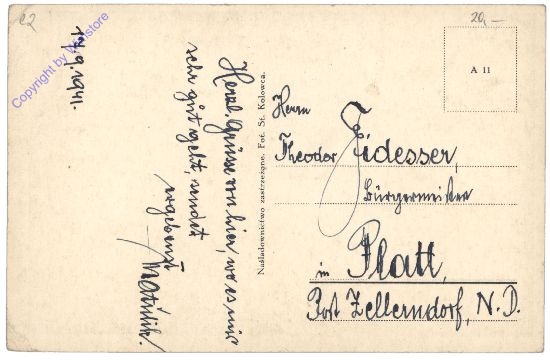 e2
20,—
Copyright by
store
17.9.1941.
Herzl. Grüsse von hier, wo es mir
sehr gut geht, sendet
ergebenst
Nasladownictwo zastrzeżone. Fot. St. Kolowca.
A 11
Herrn
Theodor Fidesser,
Bürgermeister
in Platt,
Post Zellerndorf, N. D.